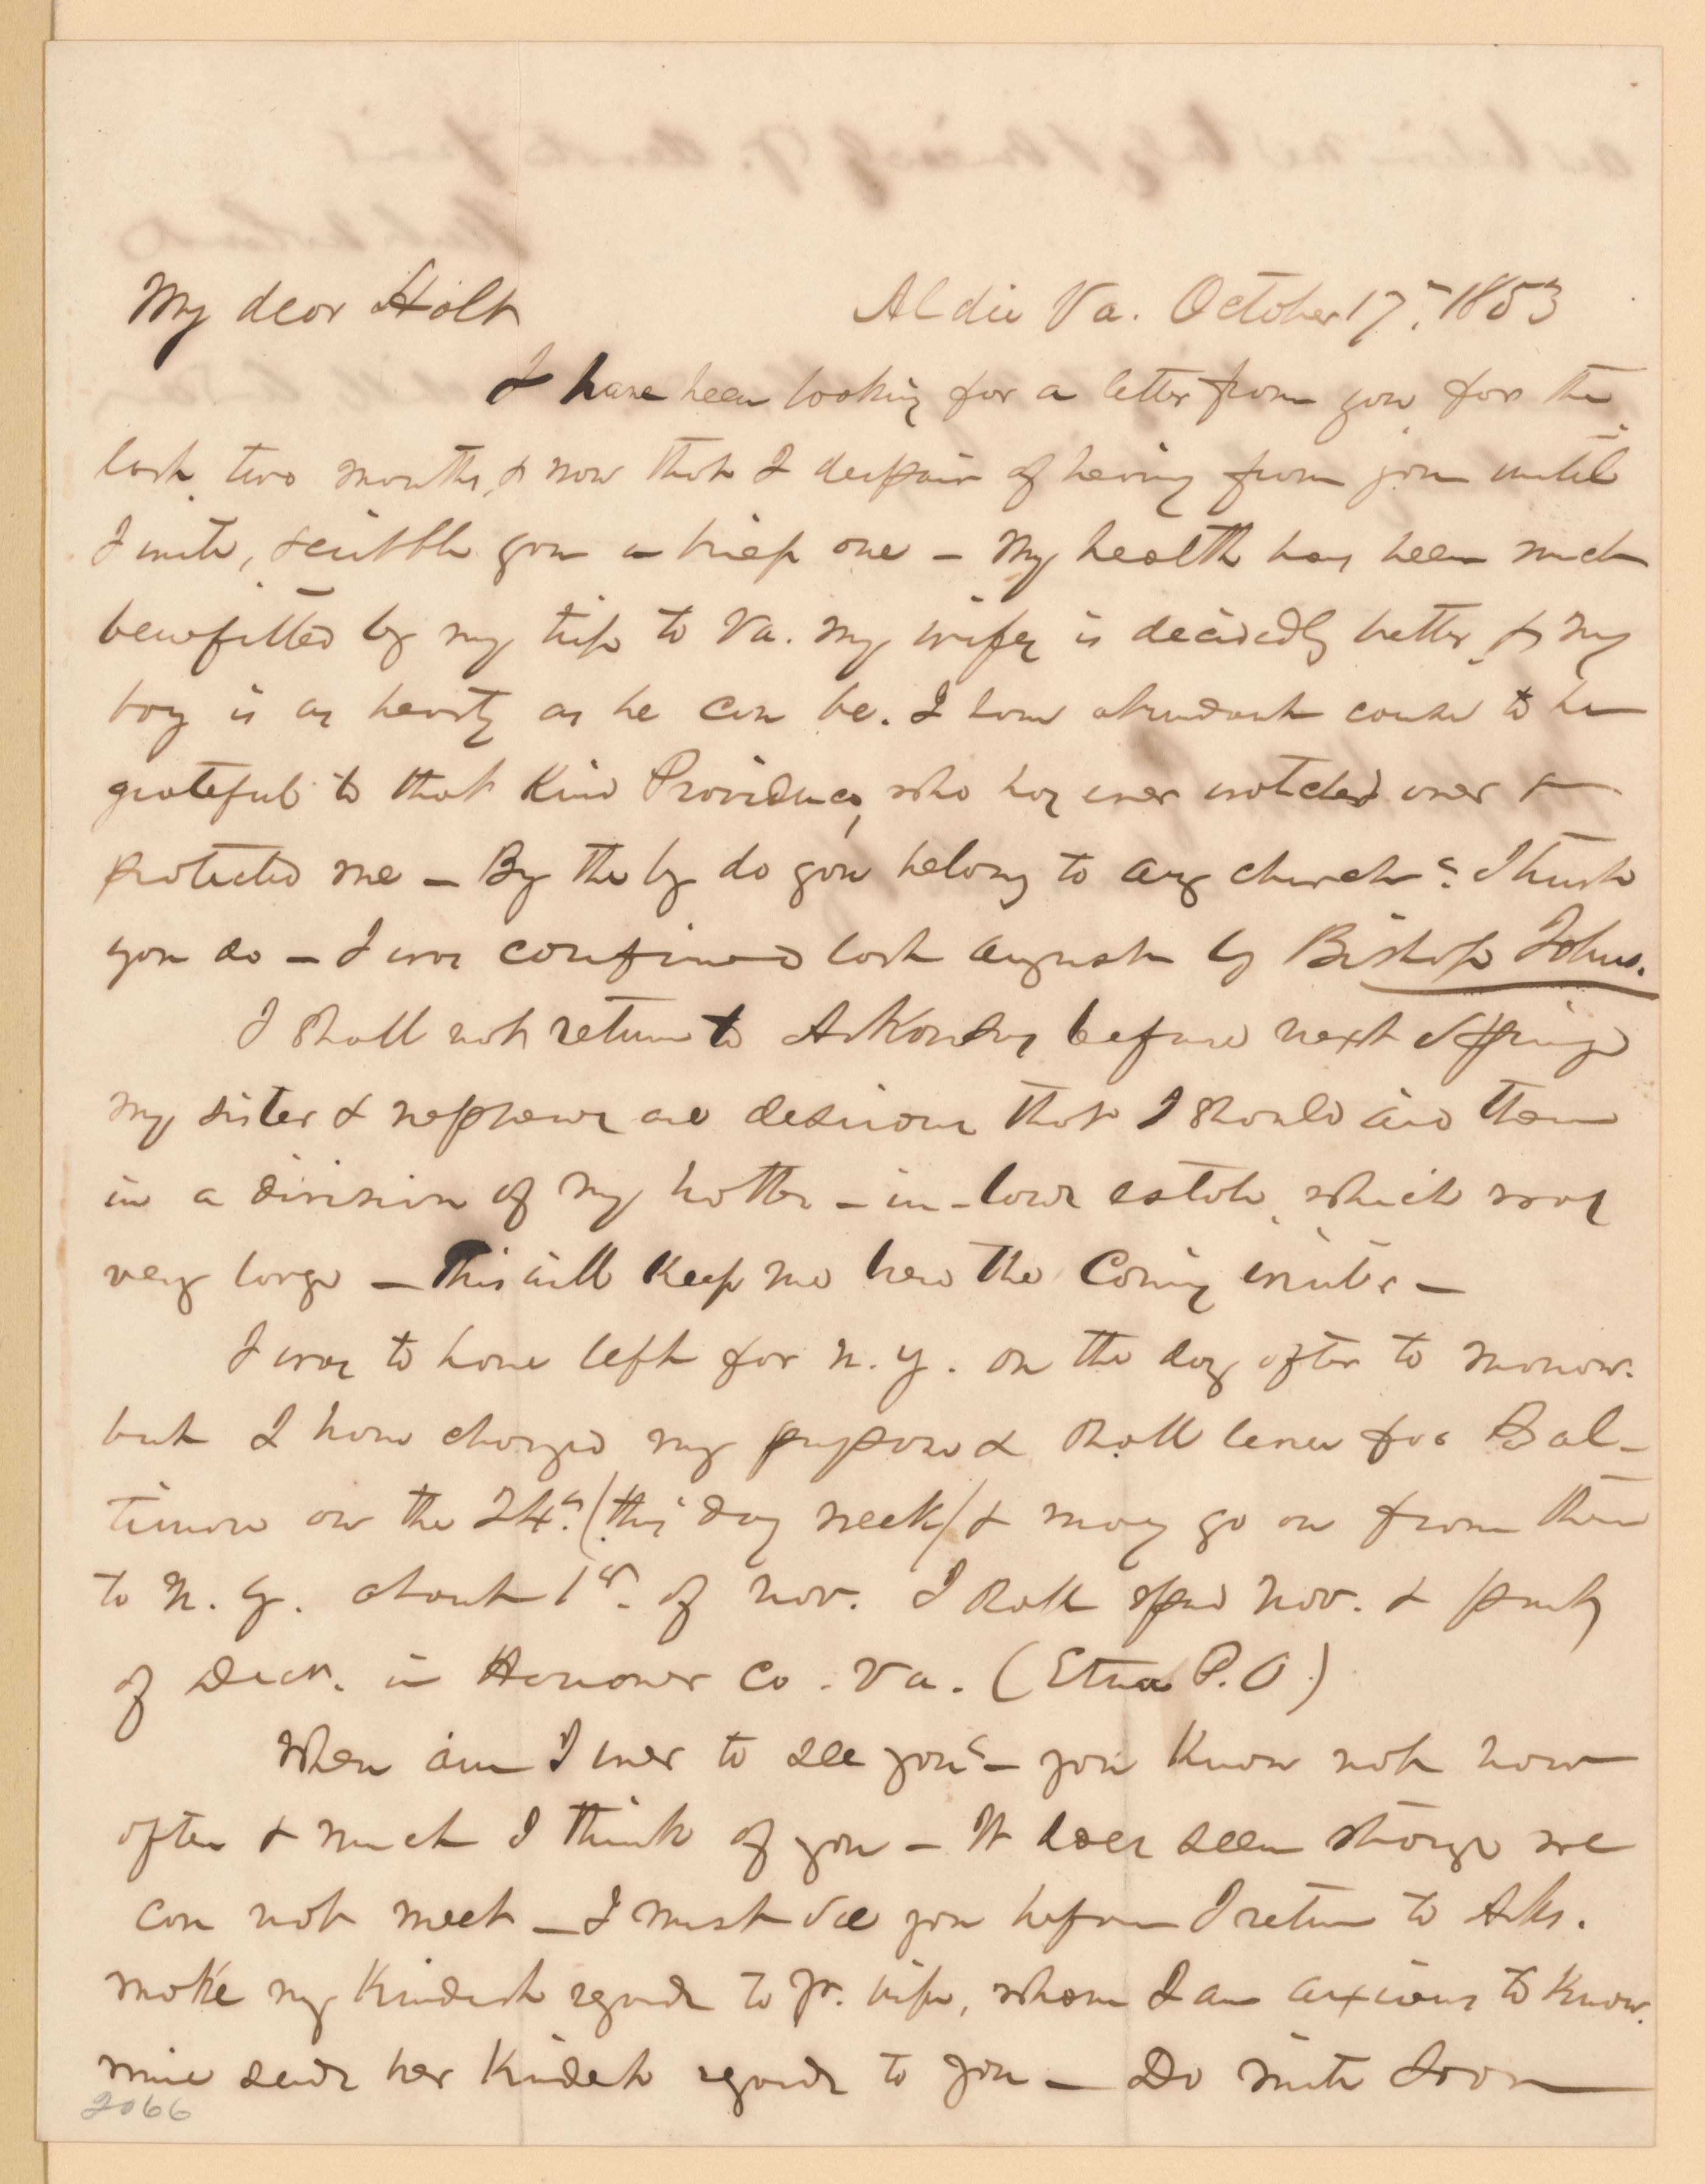 My dear Holt
Aldie Va. October 17th. 1853
I have been looking for a letter from you for the
last two months, & now that I despair of hearing from you until
I write, scribble you a brief one – My health has been much
benefitted by my trip to Va. My wife is decidedly better, & my
boy is as hearty as he can be. I have abundant cause to be
grateful to that Kind Providence, who has ever watched over &
protected me – By the by do you belong to any church? I trust
you do – I was confirmed last August by Bishop Johns.
I shall not return to Arkansas before next Spring
My sister & nephews are desirous that I should aid them
in a division of my brother-in-laws estate, which was
very large – This will keep me here the Coming winter –
I was to have left for N. Y. on the day after to morrow.
but I have changed my purpose & shall leave for Bal-
timore on the 24th. (this day week) & may go on from there
to N. Y. about 1st. of Nov. I shall spend Nov. & part
of Decr. in Hanover Co. Va. (Etna P.O.)
When am I ever to see you? – you Know not how
often & much I think of you – It does seem strange we
can not meet – I must see you before I return to Arks.
Make my Kindest regards to yr. wife, whom I am anxious to Know.
mine sends her Kindest regards to you – Do write soon
2066